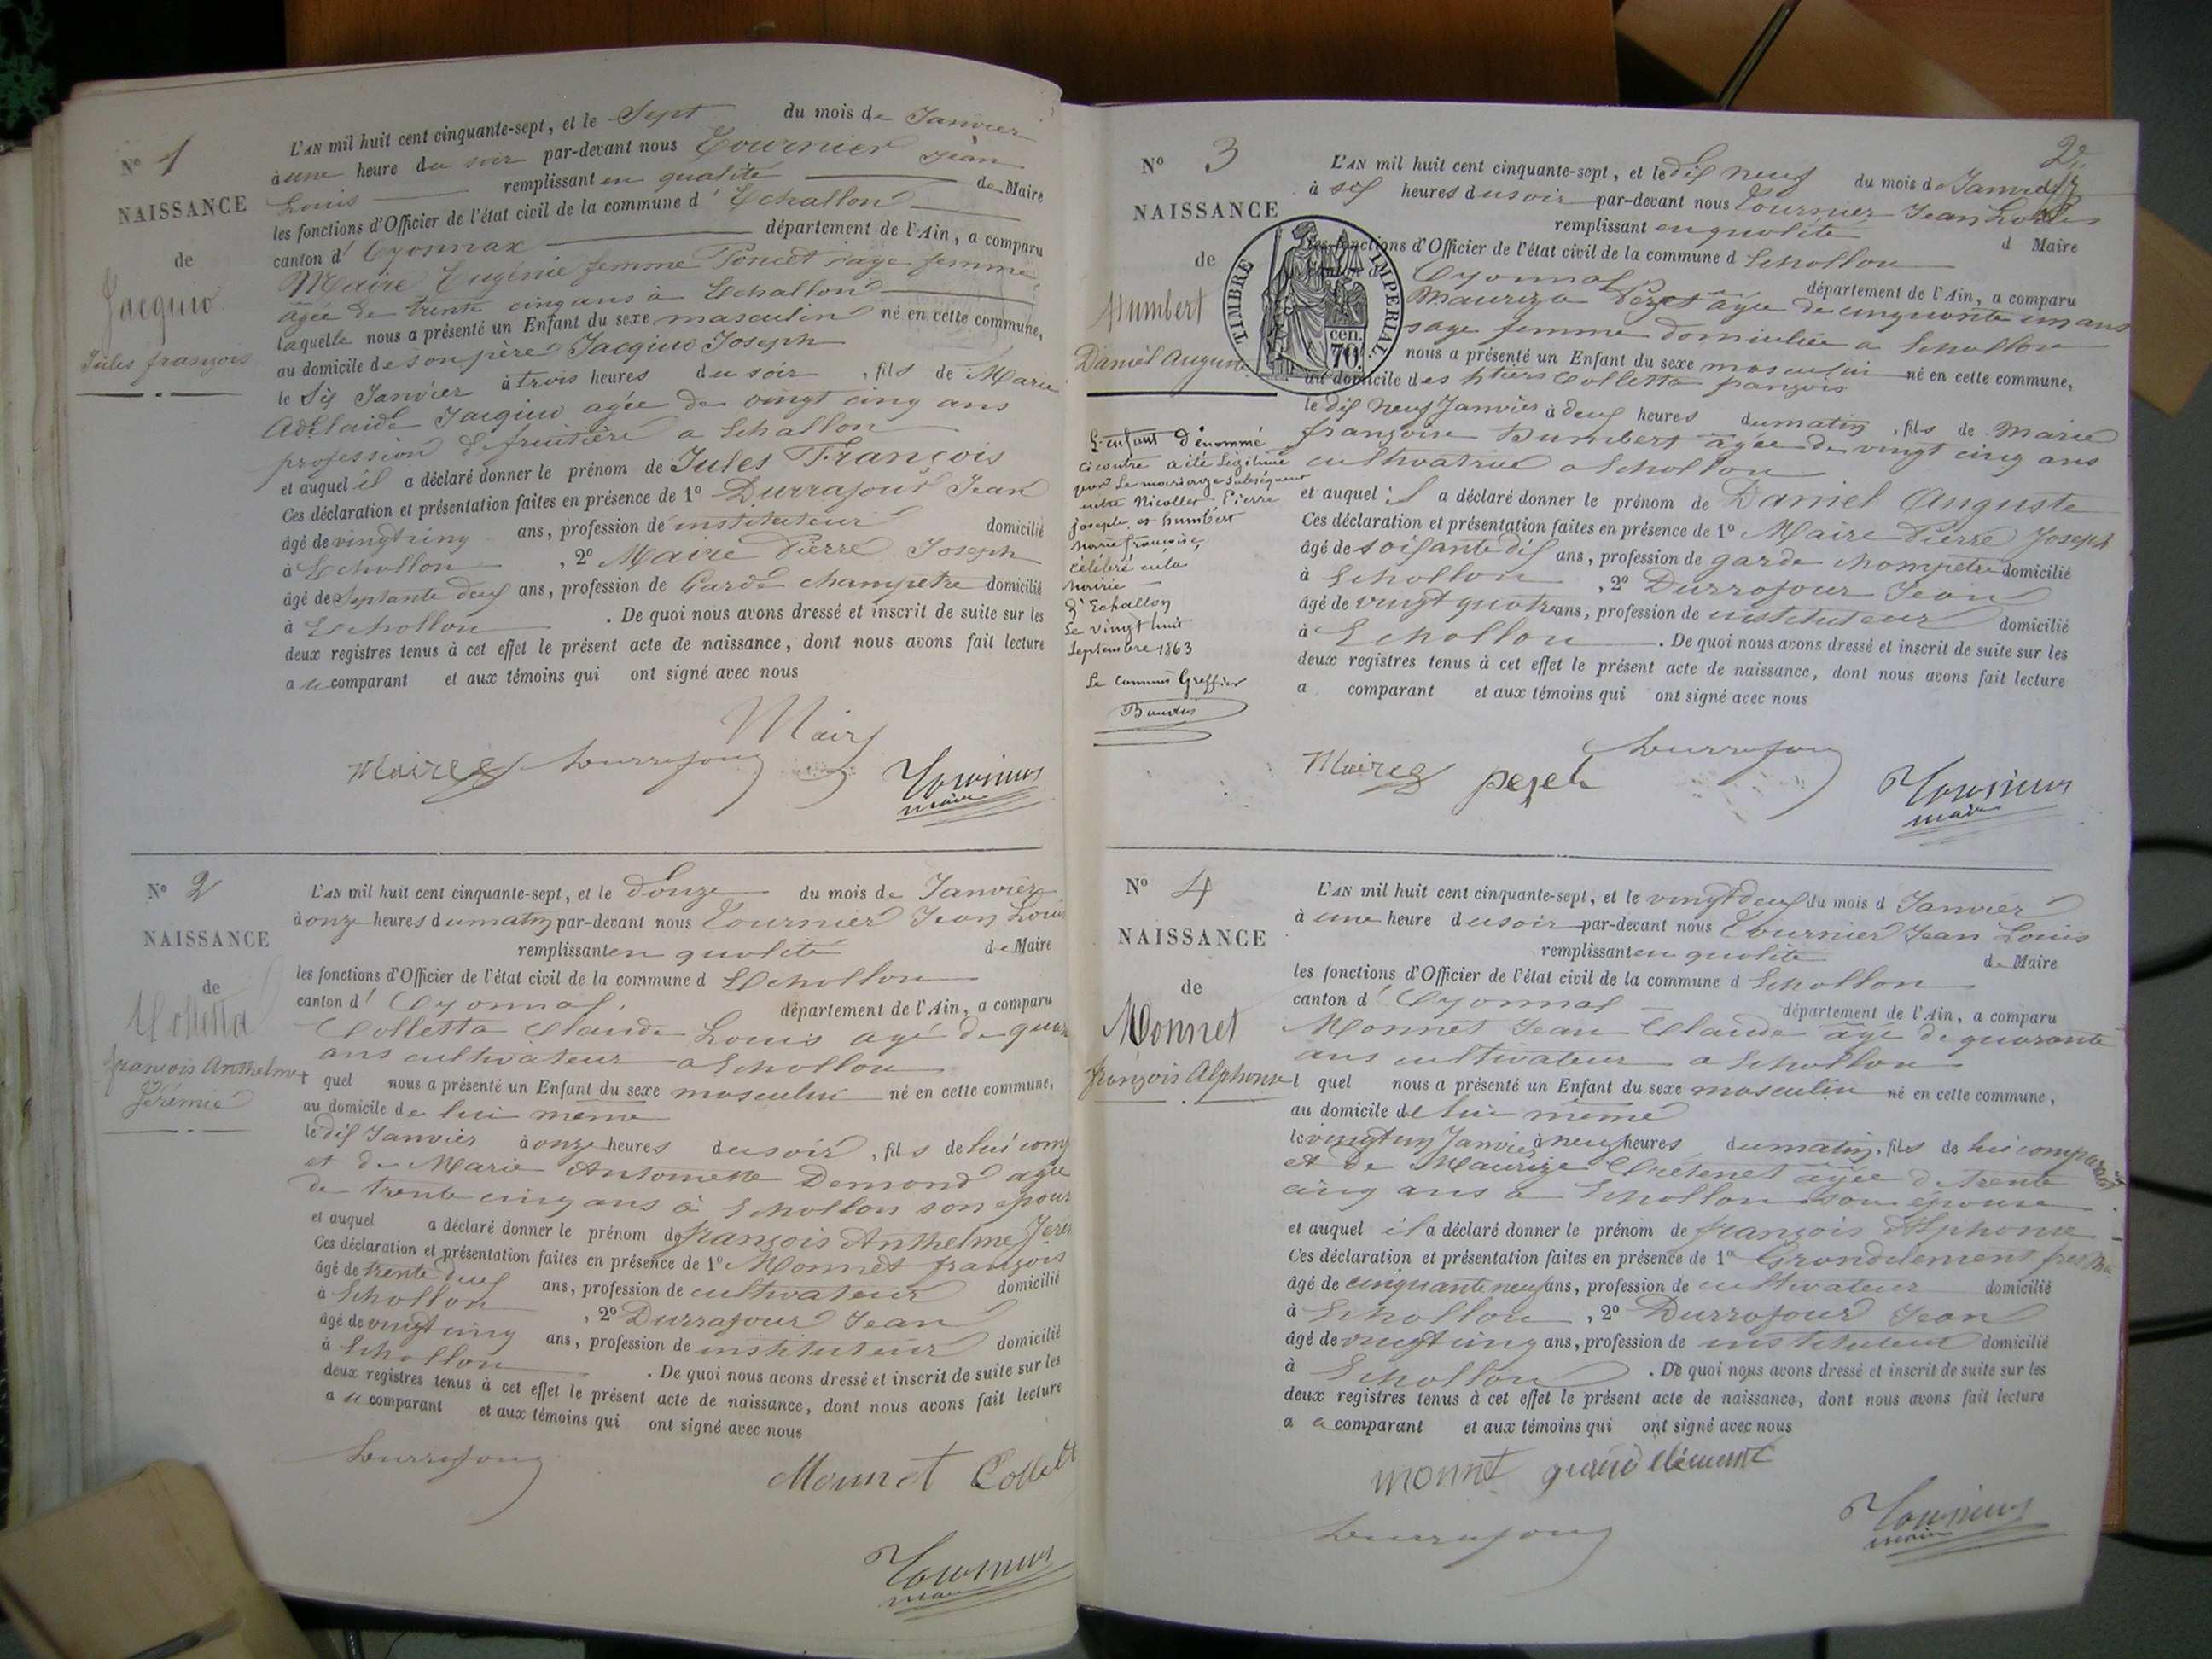 N° 1
NAISSANCE
de
Jacquio
Jules françois
L'AN mil huit cent cinquante-sept, et le Sept du mois de Janvier
à une heure du soir par-devant nous Tournier Jean
Louis remplissant en qualité de Maire
les fonctions d'Officier de l'état civil de la commune d' Echallon
canton d' Oyonnax département de l'Ain, a comparu
Maire Eugénie femme Poncet sage femme
agée de trente cinq ans à Echallon
laquelle nous a présenté un Enfant du sexe masculin né en cette commune,
au domicile de son père Jacquio Joseph
le Six Janvier à trois heures du soir, fils de Marie
Adélaide Jacquio agée de vingt cinq ans
profession de fruitière a Echallon
et auquel il a déclaré donner le prénom de Jules François
Ces déclaration et présentation faites en présence de 1° Durrafour Jean
âgé de vingt cinq ans, profession de instituteur domicilié
à Echallon, 2° Maire Pierre Joseph
âgé de Septante deux ans, profession de Garde champetre domicilié
à Echallon. De quoi nous avons dressé et inscrit de suite sur les
deux registres tenus à cet effet le présent acte de naissance, dont nous avons fait lecture
a u comparant et aux témoins qui ont signé avec nous
Maire
Maire Durrafour Tournier
maire
N° 2
NAISSANCE
de
Colletta
françois Anthelme
Jérémie
L'AN mil huit cent cinquante-sept, et le Douze du mois de Janvier
à onze heures du matin par-devant nous Tournier Jean Louis
remplissant en qualité de Maire
les fonctions d'Officier de l'état civil de la commune d Echallon
canton d' Oyonnax département de l'Ain, a comparu
Colletta Claude Louis agé de
ans cultivateur a Echallon
quel nous a présenté un Enfant du sexe masculin né en cette commune,
au domicile de lui meme
le dix Janvier à onze heures du soir, fils de lui comp
et de Marie Antoinette Demond agée
de trente cinq ans à Echallon son epous
et auquel a déclaré donner le prénom de françois Anthelme Jere
Ces déclaration et présentation faites en présence de 1° Monnet françois
âgé de trente deux ans, profession de cultivateur domicilié
à Echallon, 2° Durrafour Jean
âgé de vingt cinq ans, profession de instituteur domicilié
à Echallon. De quoi nous avons dressé et inscrit de suite sur les
deux registres tenus à cet effet le présent acte de naissance, dont nous avons fait lecture
a u comparant et aux témoins qui ont signé avec nous
Durrafour Monnet Collett
Tournier
maire
2
N° 3
NAISSANCE
de
Humbert
Daniel Auguste
TIMBRE IMPERIAL
cen.
70.
L'enfant dénommé
ci contre a été légitimé
par le mariage subséquent
entre Nicollet Pierre
joseph et humbert
marie françoise,
célébré à la
mairie
d'Echallon
Le vingt huit
Septembre 1863
Le commis Greffier
L'AN mil huit cent cinquante-sept, et le dix neuf du mois de Janvier
à six heures du soir par-devant nous Tournier Jean Louis
remplissant en qualité d Maire
les fonctions d'Officier de l'état civil de la commune d Echallon
Oyonnax département de l'Ain, a comparu
Mauriza Pezet agée de cinquante un ans
sage femme domiciliée a Echallon
nous a présenté un Enfant du sexe masculin né en cette commune,
au domicile des htiers Colletta françois
le dix neuf Janvier à deux heures du matin, fils de Marie
françoise Humbert agée de vingt cinq ans
cultivatrice a Echallon
et auquel il a déclaré donner le prénom de Daniel Auguste
Ces déclaration et présentation faites en présence de 1° Maire Pierre Joseph
âgé de soixante dix ans, profession de garde champetre domicilié
à Echallon, 2° Durrafour Jean
âgé de vingt quatre ans, profession de instituteur domicilié
à Echallon. De quoi nous avons dressé et inscrit de suite sur les
deux registres tenus à cet effet le présent acte de naissance, dont nous avons fait lecture
a comparant et aux témoins qui ont signé avec nous
Maire pezet Durrafour Tournier
maire
N° 4
NAISSANCE
de
Monnet
françois Alphonse
L'AN mil huit cent cinquante-sept, et le vingt deux du mois d Janvier
à une heure du soir par-devant nous Tournier Jean Louis
remplissant en qualité de Maire
les fonctions d'Officier de l'état civil de la commune d Echallon
canton d' Oyonnax département de l'Ain, a comparu
Monnet Jean Claude âgé de quarante
ans cultivateur a Echallon
l quel nous a présenté un Enfant du sexe masculin né en cette commune,
au domicile de lui même
le vingt un Janvier à neuf heures du matin, fils de lui comparant
et de Maurize Chetenet agée de trente
cinq ans a Echallon son épouse
et auquel il a déclaré donner le prénom de françois Alphonse
Ces déclaration et présentation faites en présence de 1° Grandclement
âgé de cinquante neuf ans, profession de cultivateur domicilié
à Echallon, 2° Durrafour Jean
âgé de vingt cinq ans, profession de instituteur domicilié
à Echallon. De quoi nous avons dressé et inscrit de suite sur les
deux registres tenus à cet effet le présent acte de naissance, dont nous avons fait lecture
a comparant et aux témoins qui ont signé avec nous
monnet grandclément
Durrafour Tournier
maire